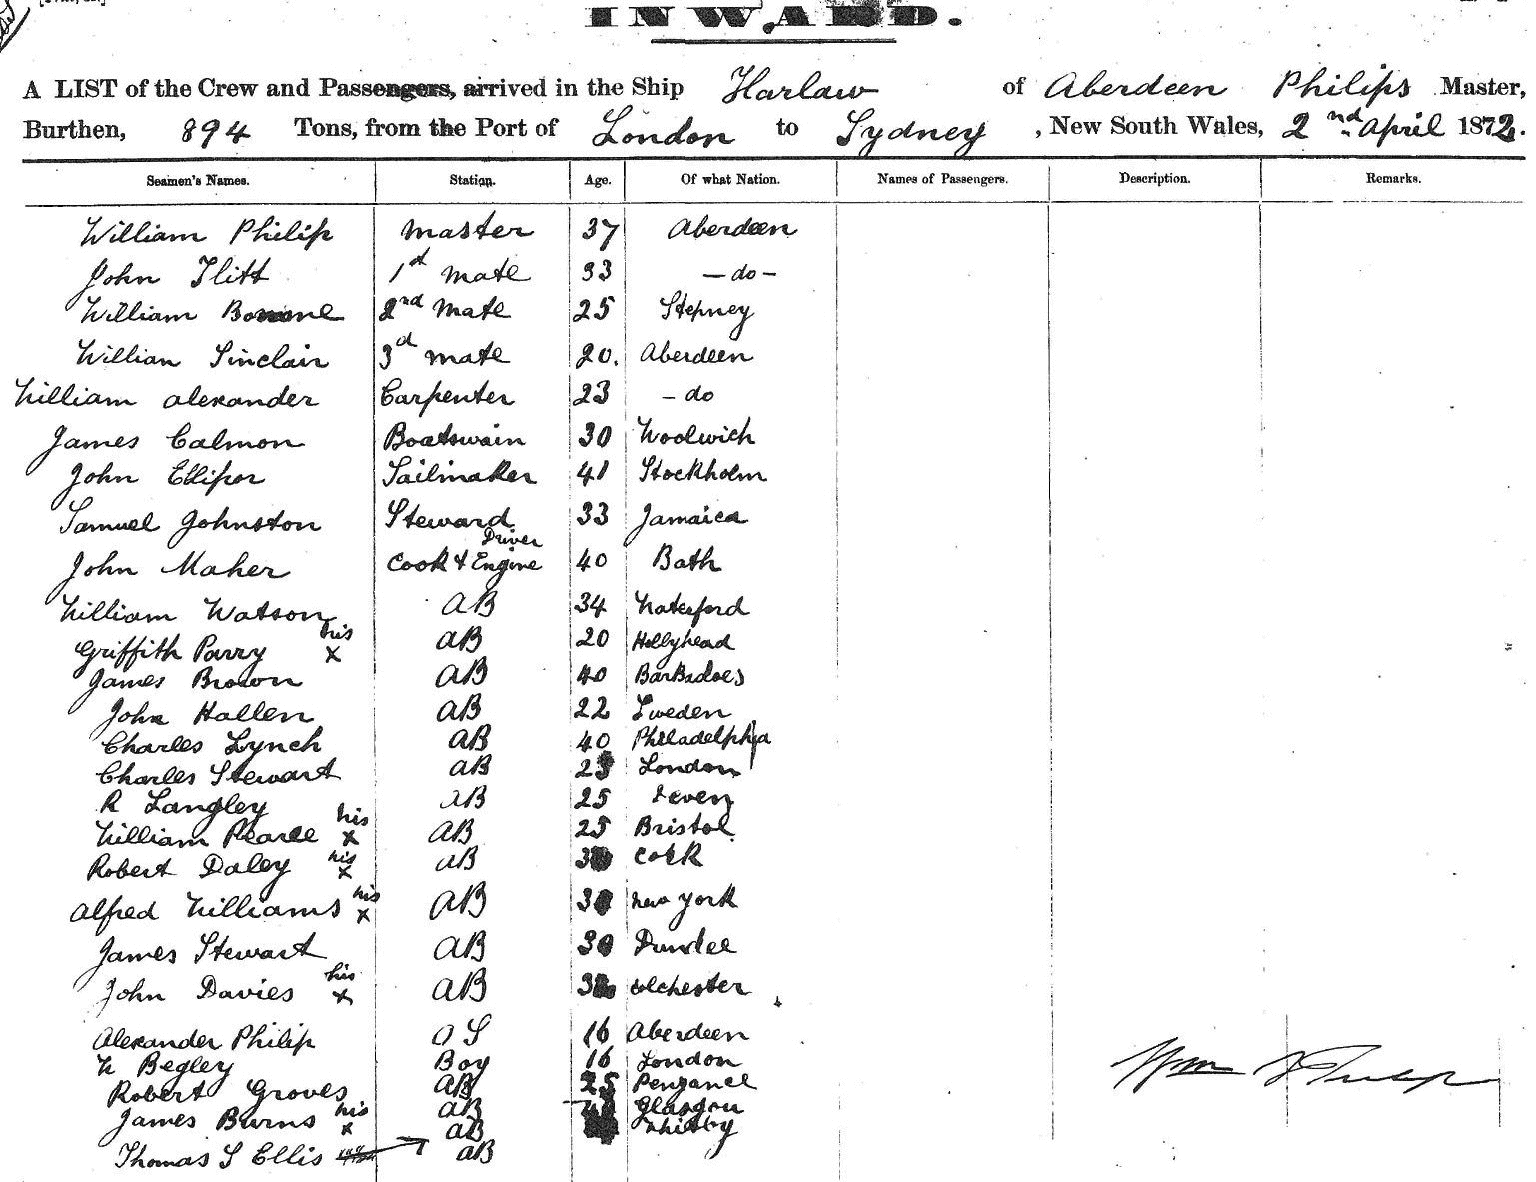 INWARD.
A LIST of the Crew and Passengers, arrived in the Ship Harlaw of Aberdeen Philips Master,
Burthen, 894 Tons, from the Port of London to Sydney, New South Wales, 2nd April 1872.
Seamen's Names. Station. Age. Of what Nation. Names of Passengers. Description. Remarks.
William Philip Master 37 Aberdeen
John Flitt 1st Mate 33 - do -
William 2nd Mate 25 Stepney
William Sinclair 3d Mate 20. Aberdeen
William Alexander Carpenter 23 - do
James Calmon Boatswain 30 Woolwich
John Sailmaker 41 Stockholm
Samuel Johnston Steward 33 Jamaica
John Maher Cook & Engine Driver 40 Bath
William Watson AB 34 Waterford
Griffith Parry his x AB 20 Hollyhead
James Brown AB 40 Barbadoes
John Hallen AB 22 Sweden
Charles Lynch AB 40 Philadelphia
Charles Stewart AB London
R Langley AB 25
William Pearce his x AB 25 Bristol
Robert Daley his x AB Cork
Alfred Williams his x AB New York
James Stewart AB 30 Dundee
John Davies his x AB Colchester
Alexander Philip OS 16 Aberdeen
W Begley Boy 16 London
Robert Groves AB 25 Penzance
James Burns his x AB Glasgow
AB Whitby
Thomas S Ellis AB
Wm Philip